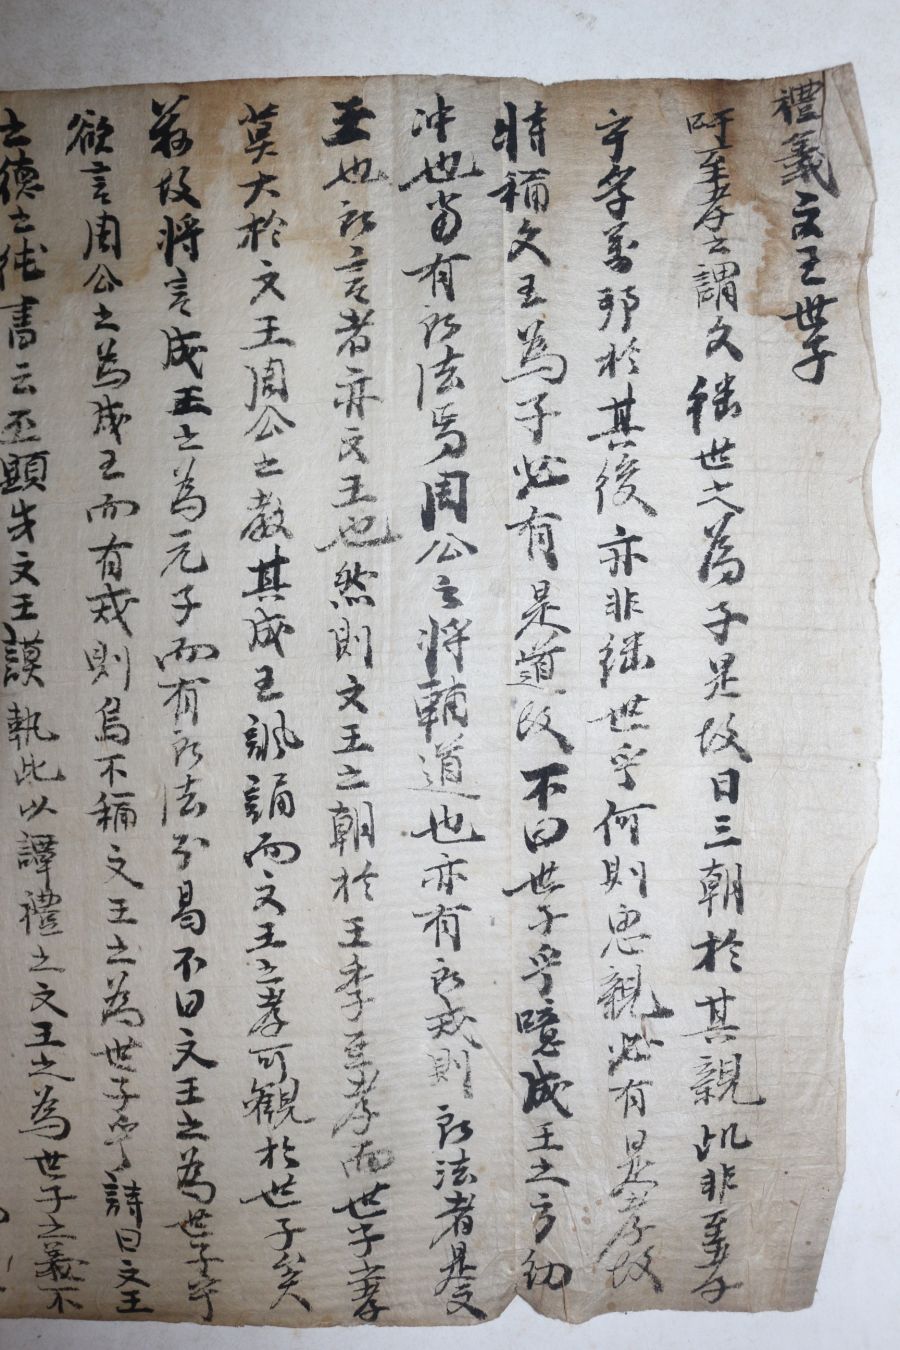 禮義文王世子
吁至孝之謂文継世之為子是故日三朝於其親此非至孝
乎孚萬邦於其後亦非継世乎何則思親必有是孝故
特稱文王為子必有是道故不曰世子乎噫成王之方幼
冲也當有所法焉周公之将輔道也亦有所戒則所法者是文
王也所言者亦文王也然則文王之朝於王季至孝而世子孝
莫大於文王周公之教其成王諷誦而文王之孝可觀於世子矣
故将言成王之為元子而有所法分曷不曰文王之為世子乎
欲言周公之為成王而有戒則烏不稱文王之為世子乎詩曰文王
之德之純書云丕顯哉文王謨執此以譯禮之文王之為世子之義不